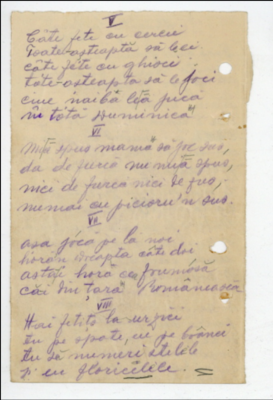 V
Câte fete cu cercei
Toate-asteaptă să le ei
câte fete cu ghioci
tóte-asteapta să le joci
cine naibă pică
în totă Duminică
VI
spus mamă să joc sus,
da de furcă nu mia spus,
nici de furcă nici de fus,
numai cu picioru'n sus.
VII
asa jócă pe la noi
câte doi
hora cu frumósă
Căi din țara Românească
VIII
Hai fetițo la urzici
tu pe spate, eu pe brânci
tu să numeri stelele
și eu floricelele.